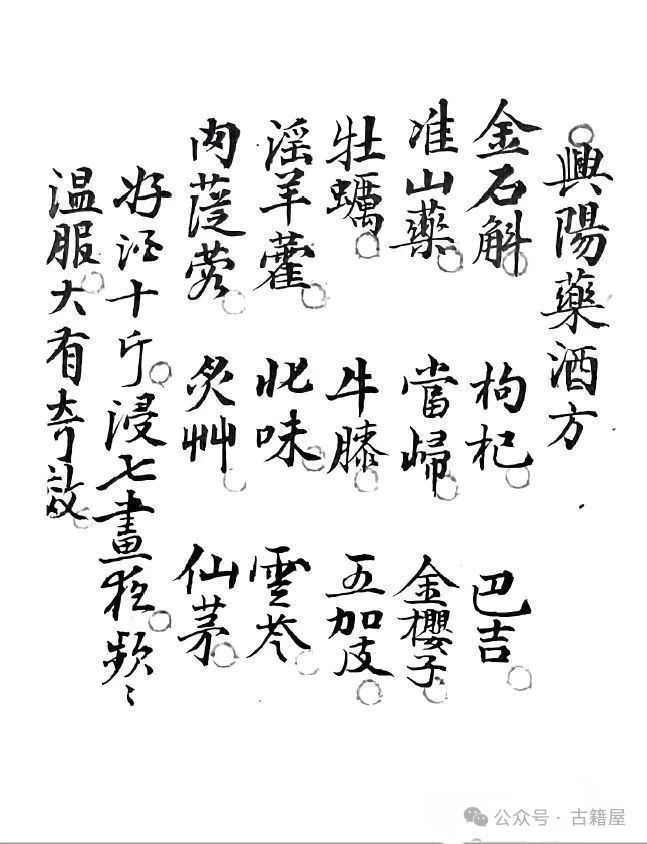 興陽藥酒方
金石斛 枸杞 巴吉
准山藥 當歸 金櫻子
牡蠣 牛膝 五加皮
淫羊藿 北味 雲苓
肉蓯蓉 炙艸 仙茅
好酒十斤浸七晝夜頻〻
温服大有奇效
公众号·古籍屋